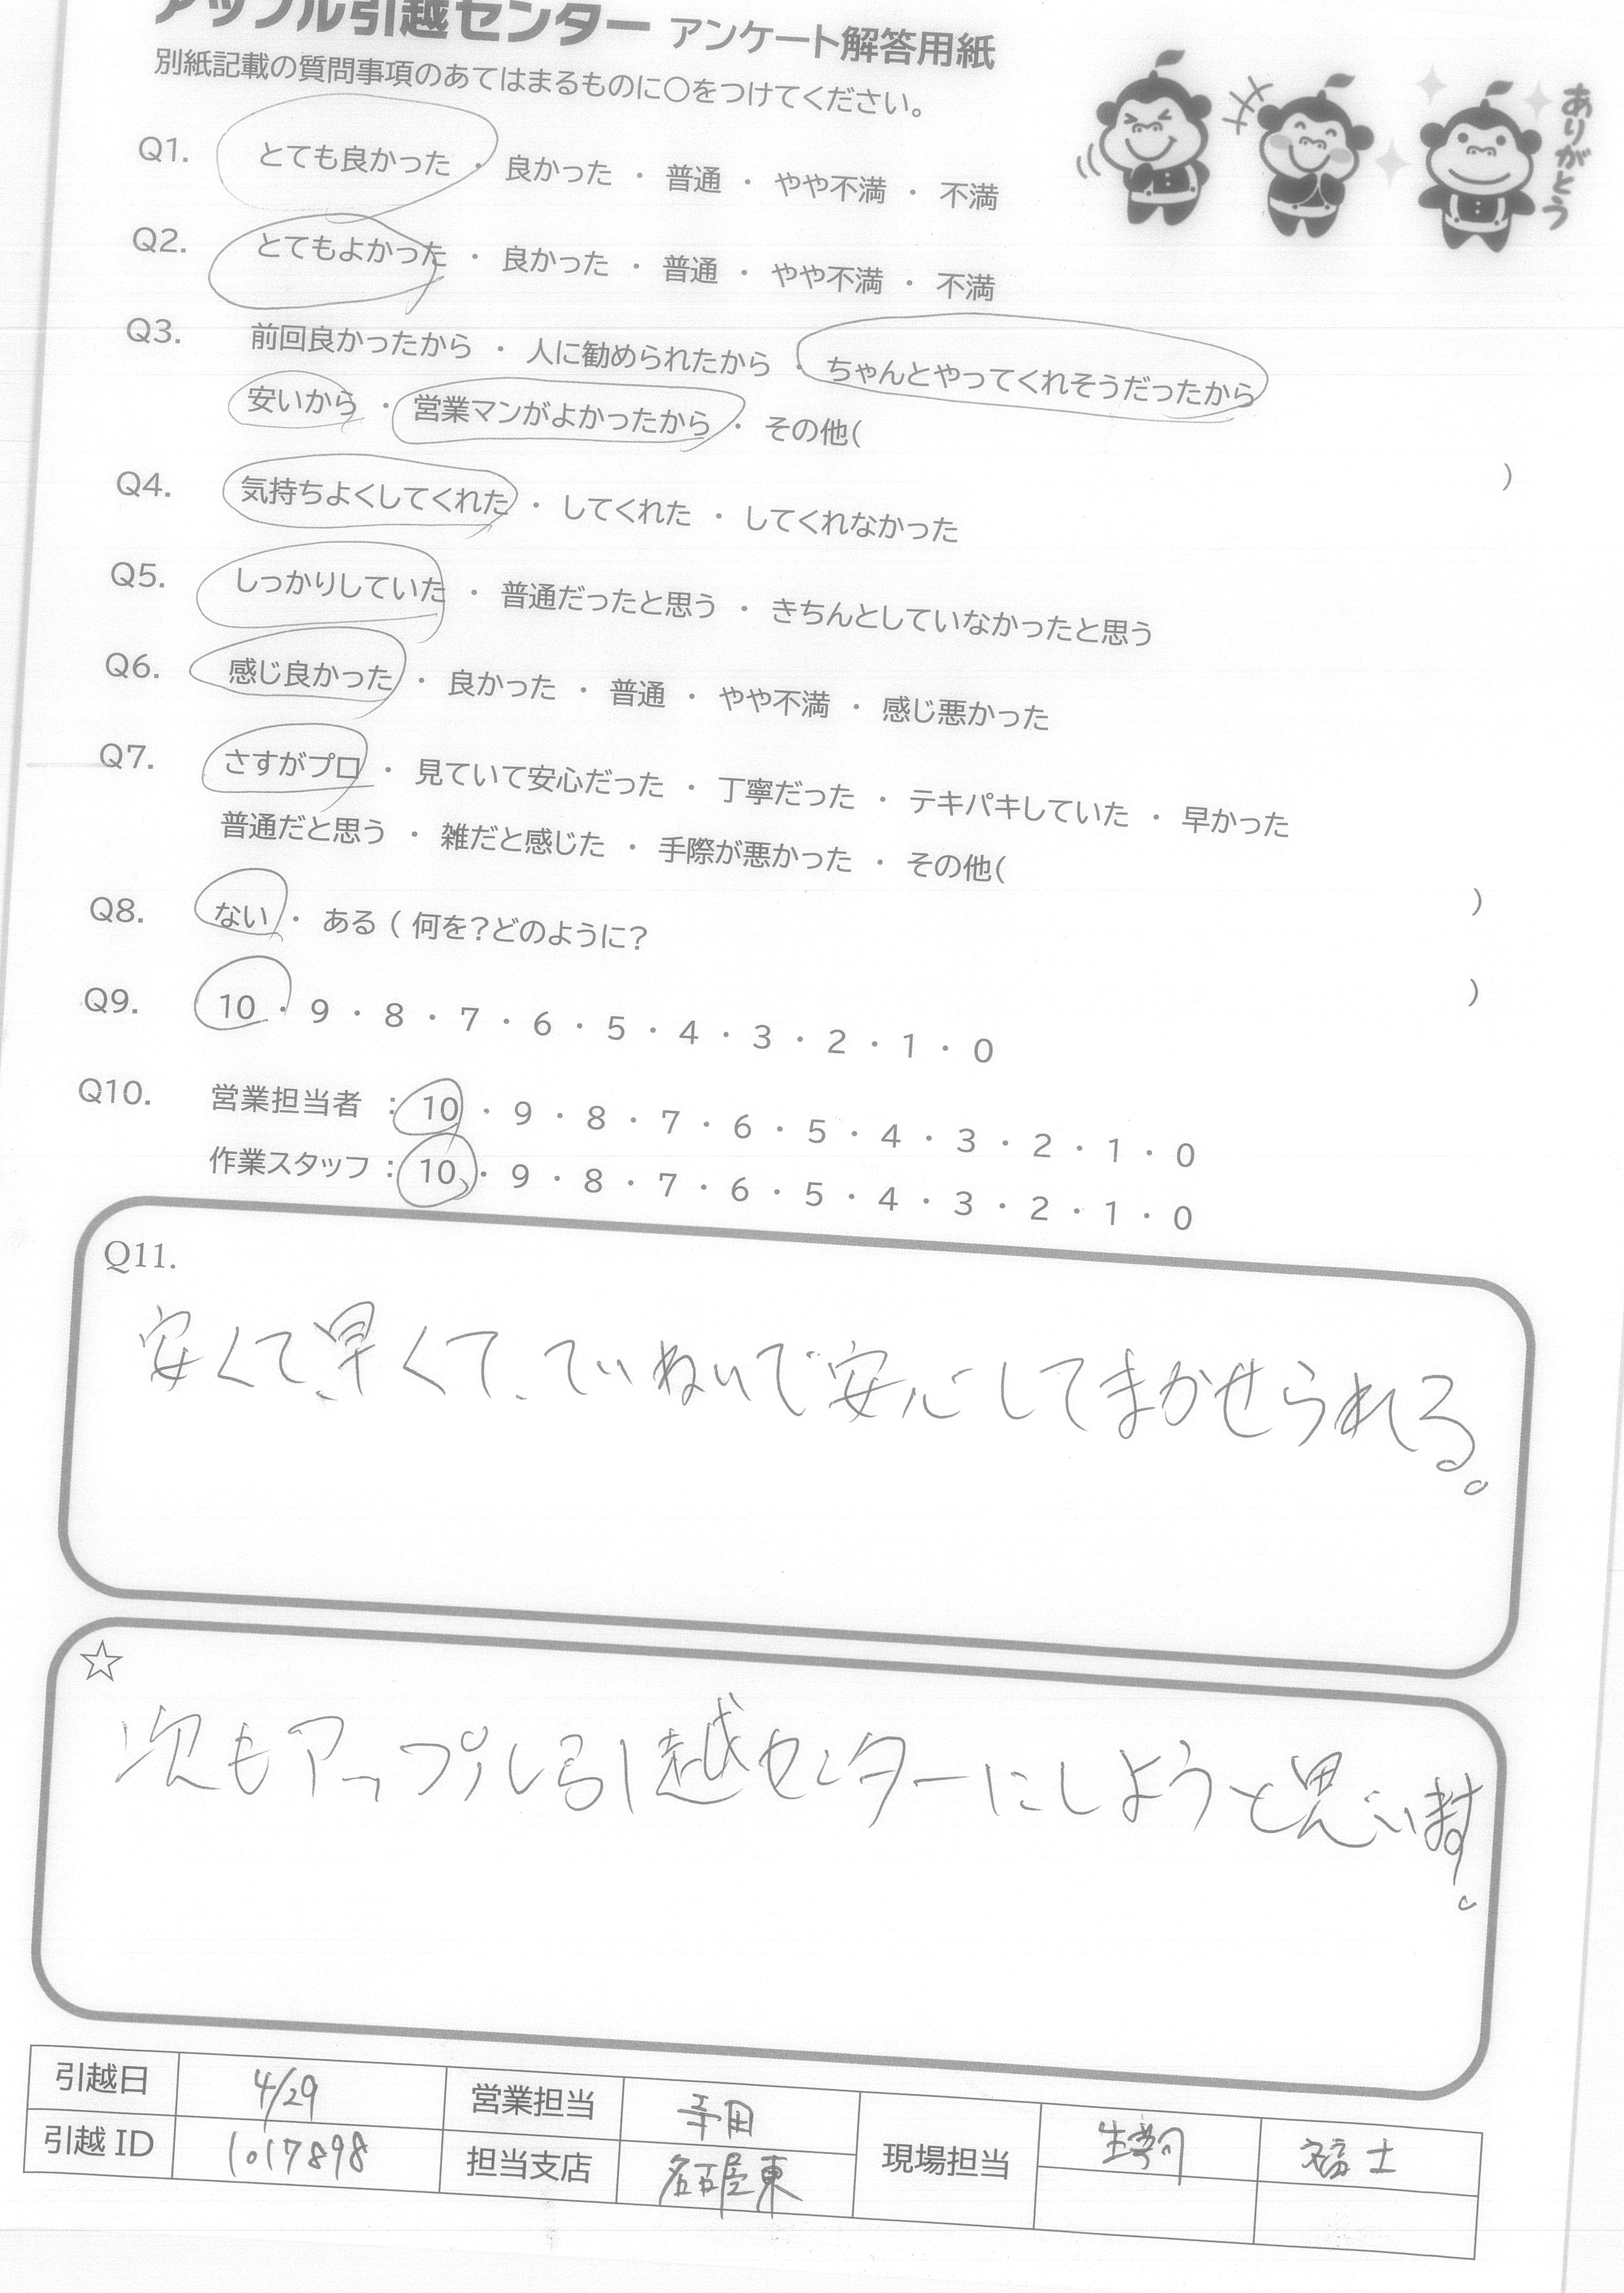 アップル引越センター アンケート解答用紙
別紙記載の質問事項のあてはまるものに○をつけてください。
ありがとう
Q1. とても良かった ・ 良かった ・ 普通 ・ やや不満 ・ 不満
Q2. とてもよかった ・ 良かった ・ 普通 ・ やや不満 ・ 不満
Q3. 前回良かったから ・ 人に勧められたから ・ ちゃんとやってくれそうだったから
安いから ・ 営業マンがよかったから ・ その他( )
Q4. 気持ちよくしてくれた ・ してくれた ・ してくれなかった
Q5. しっかりしていた ・ 普通だったと思う ・ きちんとしていなかったと思う
Q6. 感じ良かった ・ 良かった ・ 普通 ・ やや不満 ・ 感じ悪かった
Q7. さすがプロ ・ 見ていて安心だった ・ 丁寧だった ・ テキパキしていた ・ 早かった
普通だと思う ・ 雑だと感じた ・ 手際が悪かった ・ その他( )
Q8. ない ・ ある ( 何を?どのように? )
Q9. 10 ・ 9 ・ 8 ・ 7 ・ 6 ・ 5 ・ 4 ・ 3 ・ 2 ・ 1 ・ 0
Q10. 営業担当者 : 10 ・ 9 ・ 8 ・ 7 ・ 6 ・ 5 ・ 4 ・ 3 ・ 2 ・ 1 ・ 0
作業スタッフ : 10 ・ 9 ・ 8 ・ 7 ・ 6 ・ 5 ・ 4 ・ 3 ・ 2 ・ 1 ・ 0
Q11.
安くて、早くて、ていねいで安心してまかせられる。
☆
次もアップル引越センターにしようと思います。
引越日 4/29 営業担当 寺田 現場担当
引越ID 1017898 担当支店 名古屋東